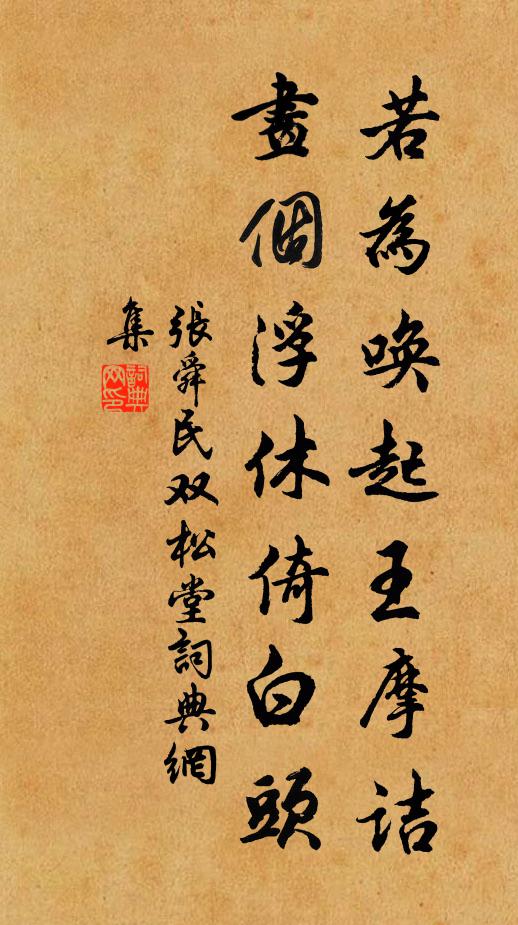 若為喚起王摩詰
畫個浮休倚白頭
張舜民双松堂詞典網
集
詞典網印